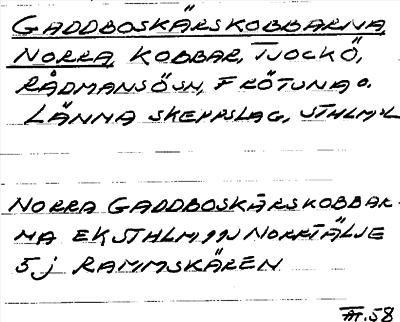 GADDBOSKÄRSKOBBARNA,
NORRA, KOBBAR, TJOCKÖ,
RÅDMANSÖ SN, FRÖTUNA O.
LÄNNA SKEPPSLAG, STHLMS L
NORRA GADDBOSKÄRSKOBBAR-
NA EK STHLM 99J NORRTÄLJE
5j RAMMSKÄREN
58